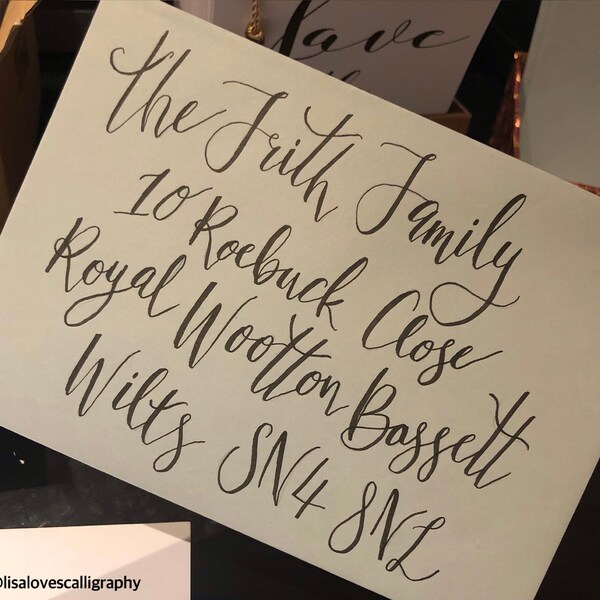 Save
The Frith Family
10 Roebuck Close
Royal Wootton Bassett
Wilts SN4 8NL
@lisalovescalligraphy